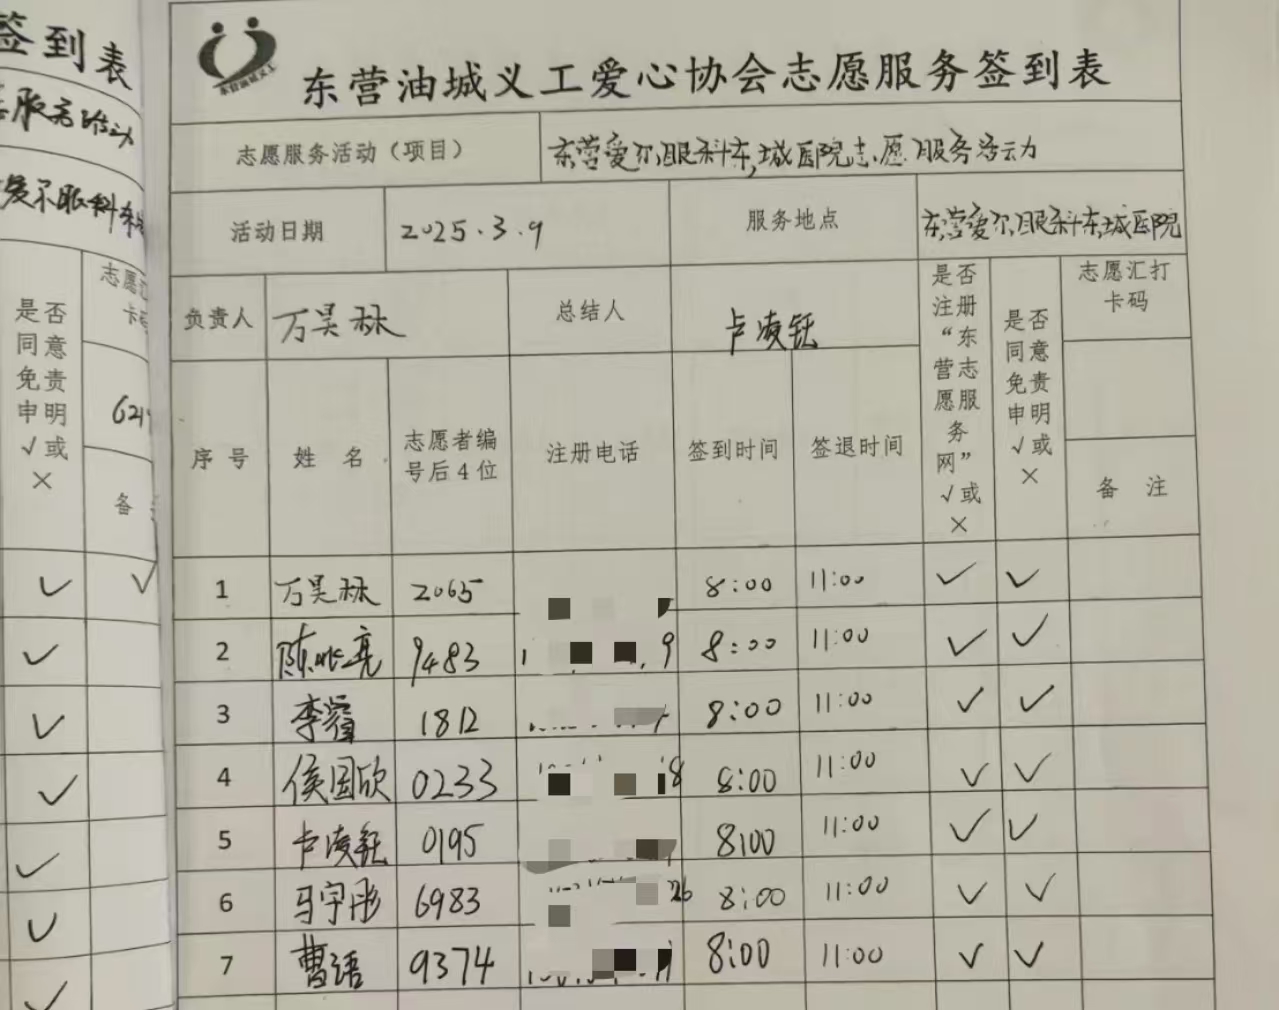 签到表
服务活动
爱尔眼科东
是否同意免责申明√或×
志愿汇
卡码
621
备
东营油城义工
东营油城义工爱心协会志愿服务签到表
志愿服务活动（项目） 东营爱尔眼科东城医院志愿服务活动
活动日期 2025.3.9 服务地点 东营爱尔眼科东城医院
负责人 万昊林 总结人 卢凌钰 是否注册“东营志愿服务网”√或× 是否同意免责申明√或× 志愿汇打卡码
序号 姓名 志愿者编号后4位 注册电话 签到时间 签退时间 备注
1 万昊林 2065 8:00 11:00 ✓ ✓
2 陈兆亮 9483 9 8:00 11:00 ✓ ✓
3 李 1812 8:00 11:00 ✓ ✓
4 侯国欣 0233 8 8:00 11:00 ✓ ✓
5 卢凌钰 0195 8:00 11:00 ✓ ✓
6 马宇彤 6983 26 8:00 11:00 ✓ ✓
7 曹语 9374 8:00 11:00 ✓ ✓